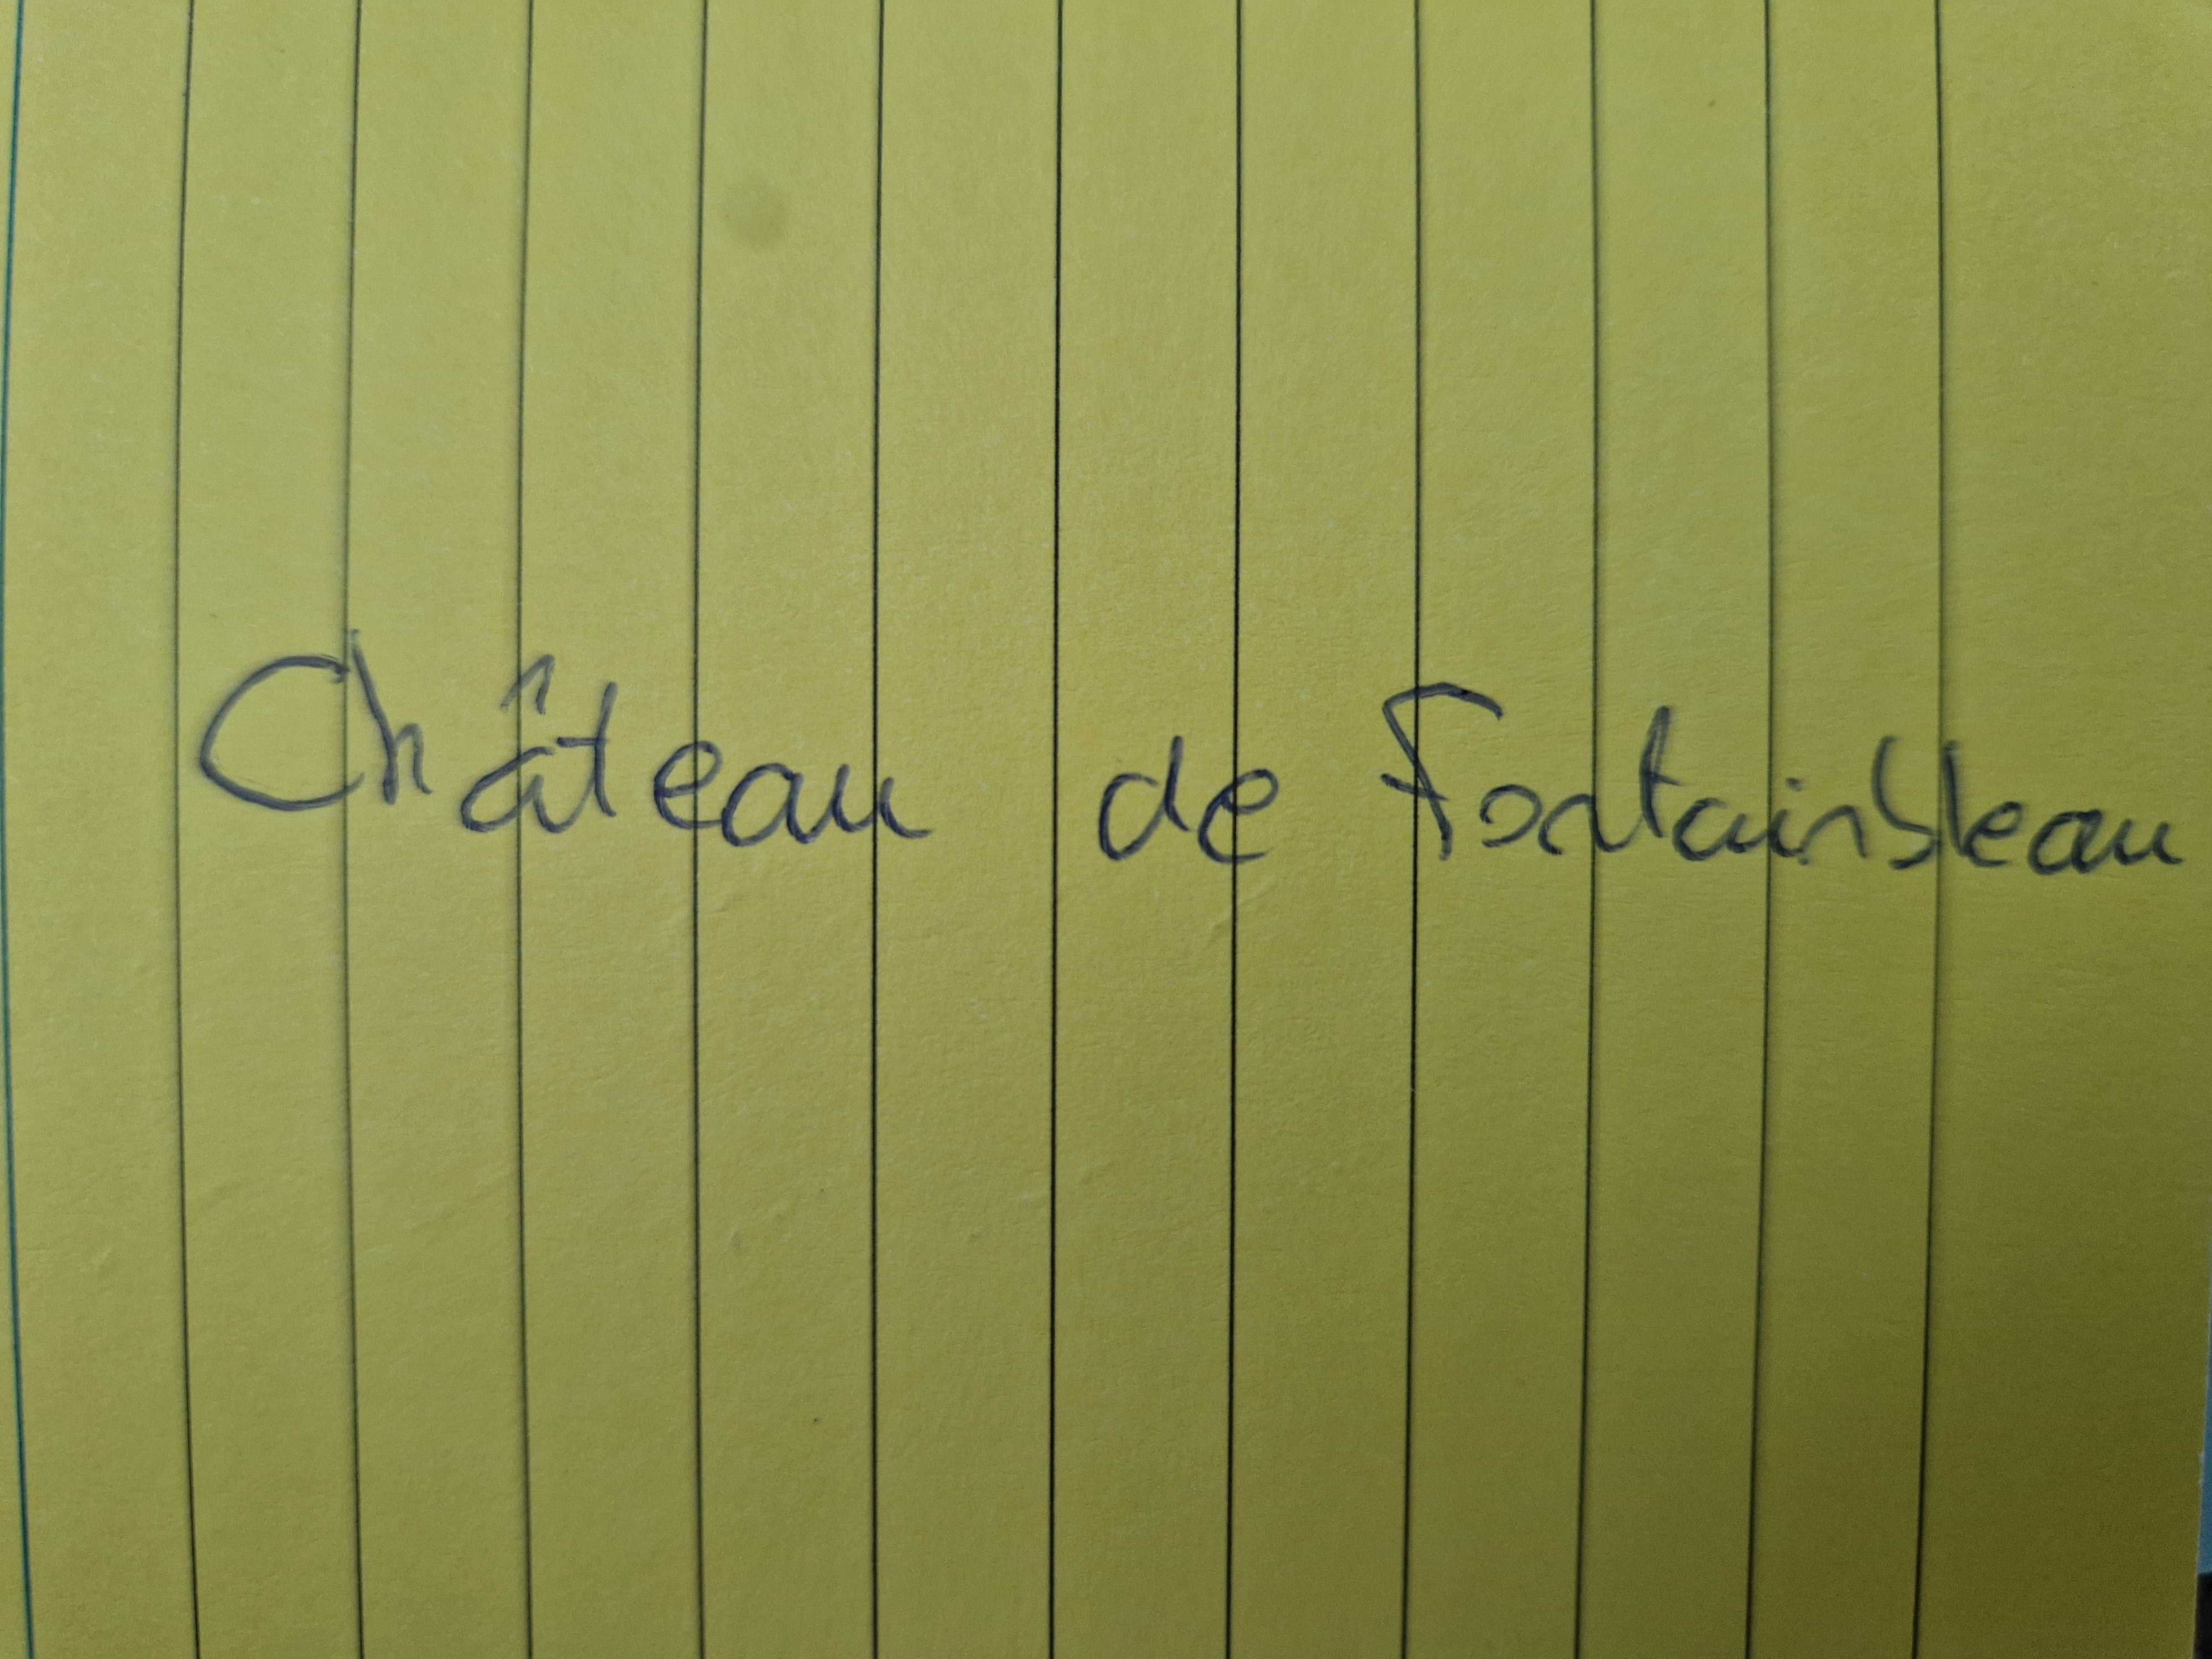 Château de Fontainbleau